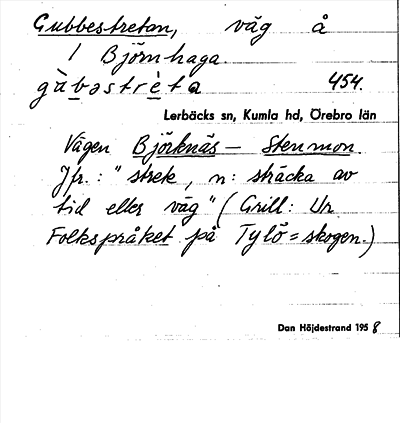 Gubbestretan, väg å
1 Björnhaga.
gàbəstrèta 454.
Lerbäcks sn, Kumla hd, Örebro län
Vägen Björknäs – Stenmon.
Jfr.: "strek, n: sträcka av
tid eller väg" (Grill: Ur
Folkspråket på Tylö=skogen.)
Dan Höjdestrand 1958